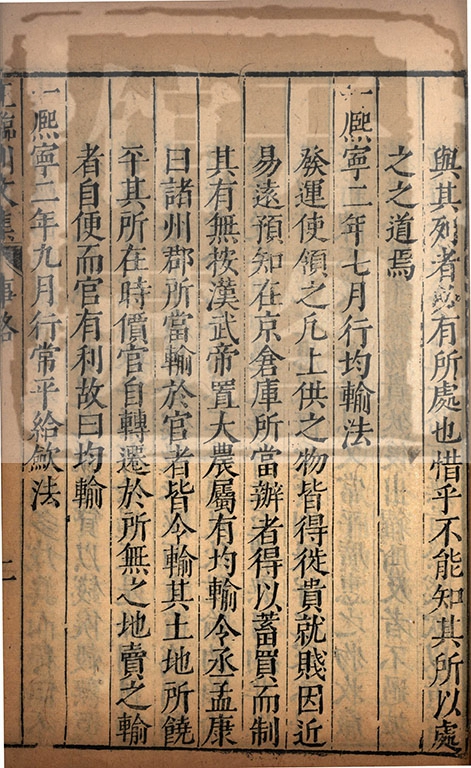 與其列者必有所處也惜乎不能知其所以處
之之道焉
一熙寧二年七月行均輸法
發運使領之凡上供之物皆得從貴就賤因近
易遠預知在京倉庫所當辦者得以蓄買而制
其有無按漢武帝置大農屬有均輸令丞孟康
曰諸州郡所當輸於官者皆令輸其土地所饒
平其所在時價官自轉遷於所無之地賣之輸
者自便而官有利故曰均輸
一熙寧二年九月行常平給歛法
王臨川文集 事略 二